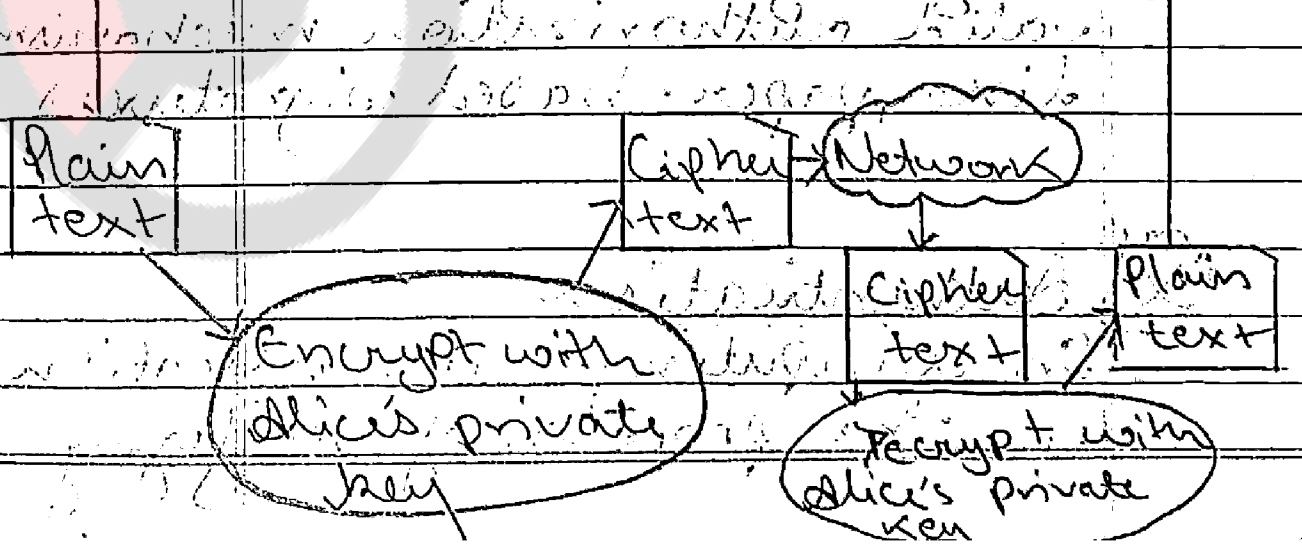 Plain
text
Cipher
text
Network
Cipher
text
Plain
text
Encrypt with
Alice's private
key
Decrypt with
Alice's private
key